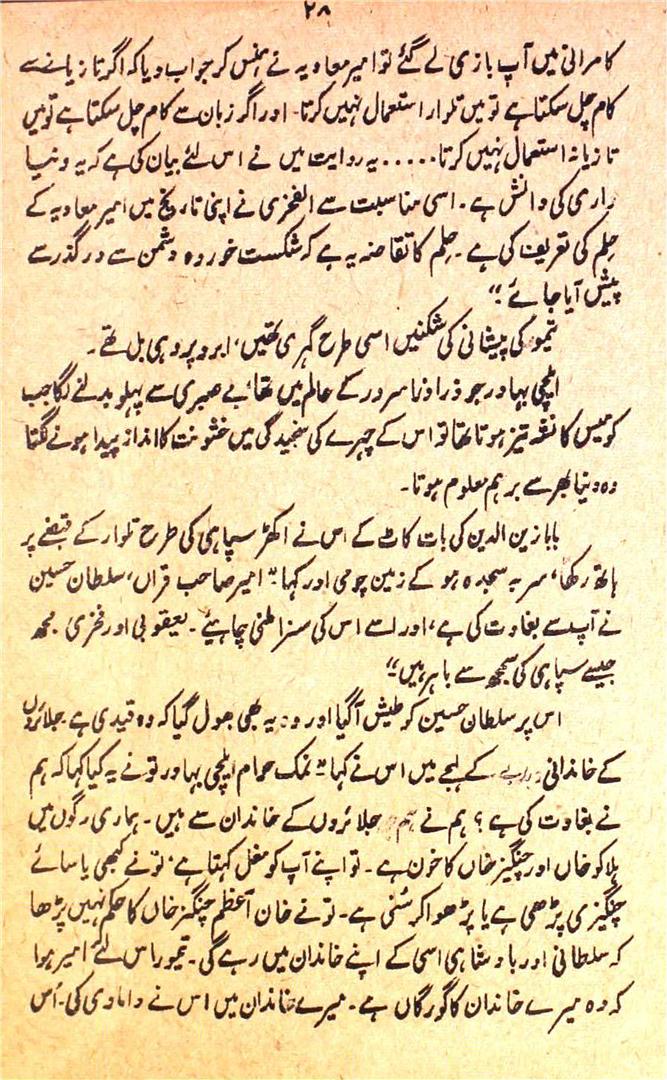 ۲۸
کامرانی میں آپ بازی لے گئے تو امیر معاویہ نے ہنس کر جواب دیا کہ اگر تازیانے سے
کام چل سکتا ہے تو میں تلوار استعمال نہیں کرتا۔ اور اگر زبان سے کام چل سکتا ہے تو میں
تازیانہ استعمال نہیں کرتا..... یہ روایت میں نے اس لئے بیان کی ہے کہ یہ دنیا
داری کی دانش ہے۔ اسی مناسبت سے الفخری نے اپنی تاریخ میں امیر معاویہ کے
حلم کی تعریف کی ہے۔ حلم کا تقاضہ یہ ہے کہ شکست خوردہ دشمن سے درگذر سے
پیش آیا جائے"
تیمور کی پیشانی کی شکنیں اسی طرح گہری تھیں، ابرو پر وہی بل تھے۔
ایلچی بہادر جو ذرا دنا سرور کے عالم میں تھا، بے صبری سے پہلو بدلنے لگا جب
کومیس کا نشہ تیز ہوتا تھا تو اس کے چہرے کی سنجیدگی میں خشونت کا انداز پیدا ہونے لگتا
وہ دنیا بھر سے برہم معلوم ہوتا۔
بابا زین الدین کی بات کاٹ کے اس نے اکھڑ سپاہی کی طرح تلوار کے قبضے پر
ہاتھ رکھا، سر بہ سجدہ ہو کے زمین چومی اور کہا "امیر صاحب قراں، سلطان حسین
نے آپ سے بغاوت کی ہے، اور اسے اس کی سزا ملنی چاہیئے۔ یعقوبی اور فخری مجھ
جیسے سپاہی کی سمجھ سے باہر ہیں"
اس پر سلطان حسین کو طیش آگیا اور وہ یہ بھی بھول گیا کہ وہ قیدی ہے جلائروں
کے خاندانی کے لہجے میں اس نے کہا "نمک حرام ایلچی بہادر تو نے یہ کیا کہا کہ ہم
نے بغاوت کی ہے؟ ہم نے ہم جلائروں کے خاندان سے ہیں۔ ہماری رگوں میں
ہلاکو خاں اور چنگیز خاں کا خون ہے۔ تو اپنے آپ کو مغل کہتا ہے، تو نے کبھی یاسائے
چنگیزی پڑھی ہے یا پڑھوا کر سُنی ہے۔ تو نے خان اعظم چنگیز خاں کا حکم نہیں پڑھا
کہ سلطانی اور بادشاہی اسی کے اپنے خاندان میں رہے گی۔ تیمور اس لئے امیر ہوا
کہ وہ میرے خاندان کا گورگاں ہے۔ میرے خاندان میں اس نے دامادی کی۔ اُس